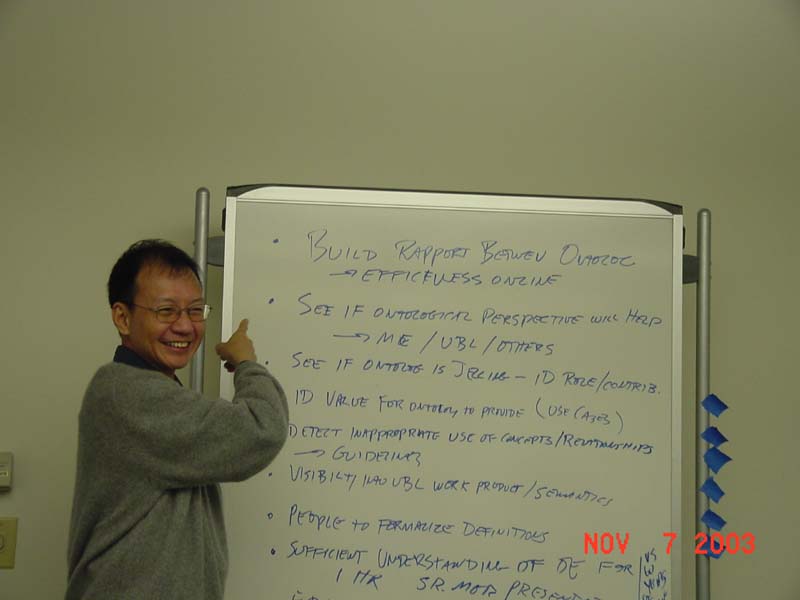 • BUILD RAPPORT BETWEEN ONTOLOG
→ EFFICEVLESS ONLINE
• SEE IF ONTOLOGICAL PERSPECTIVE WILL HELP
→ / UBL / OTHERS
• SEE IF ONTOLOG IS JELLING – ID ROLE/CONTRIB.
ID VALUE FOR ONTOLOG TO PROVIDE (USE CASES)
DETECT INAPPROPRIATE USE OF CONCEPTS/RELATIONSHIPS
→ GUIDELINES
• VISIBILTY INTO UBL WORK PRODUCT/SEMANTICS
• PEOPLE TO FORMALIZE DEFINITIONS
• SUFFICIENT UNDERSTANDING OF OE FOR
1 HR SR. MGR PRESENTAT
NOV 7 2003